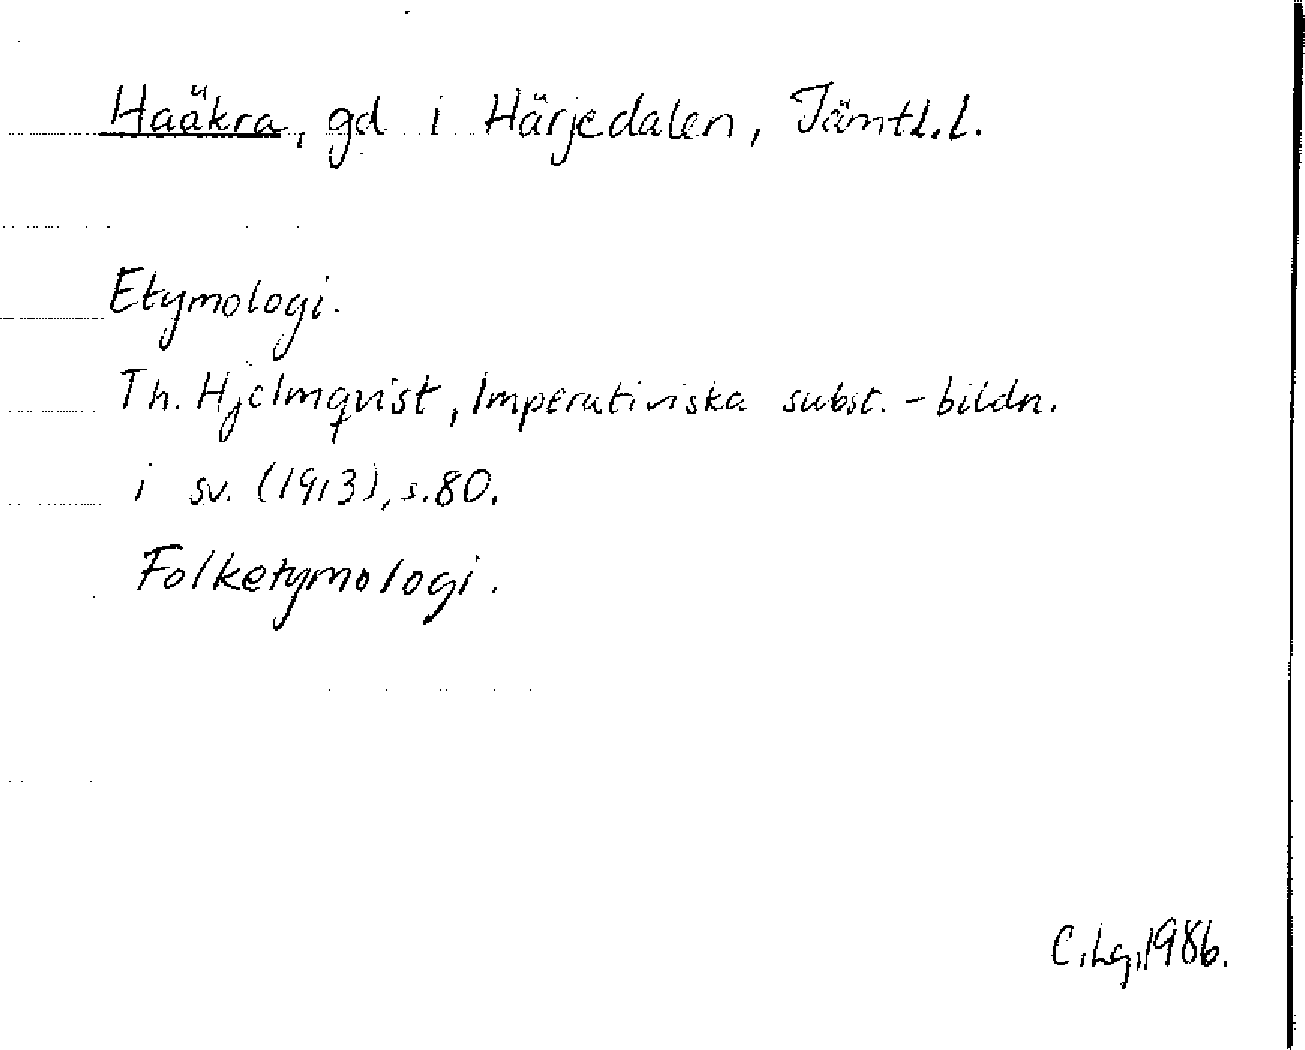 Haäkra, gd i Härjedalen, Jämtl.l.
Etymologi.
Th. Hjelmqvist, Imperativiska subst.-bildn.
i sv. (1913), s.80.
Folketymologi.
C.Lg,1986.